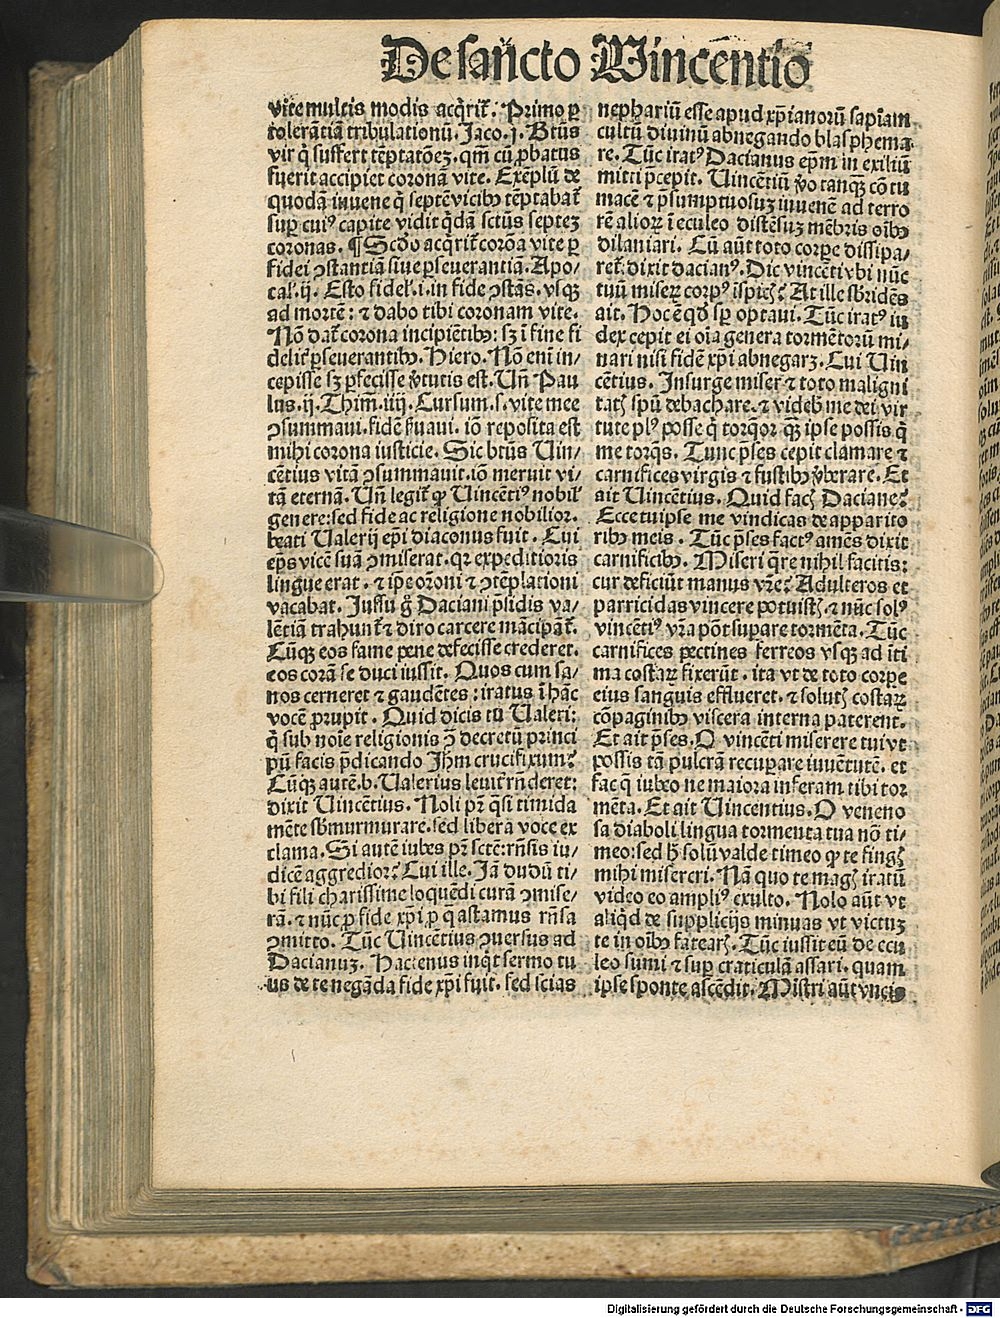 De sancto Vincentio
vite multis modis acq̈rit᷑. Primo ꝑ
tolerantiã tribulationũ. Jaco. j. Btũs
vir q̇ suffert tẽptatõez. qm̃ cũ ꝓbatus
fuerit accipiet coronã vite. Exẽplũ de
quodã iuuene q̇ septẽ vicibꝰ tẽptabat᷑
suꝑ cuiꝰ capite vidit q̇dã sctũs septez
coronas. ¶ Scd̃o acq̈rit᷑ corõa vite ꝑ
fidei ꝯstantiã siue ꝑseuerantiã. Apo-
cal̃. ij. Esto fidel̃. i. in fide ꝯstãs. vsqꝫ
ad mortẽ: ⁊ dabo tibi coronam vite.
Nõ dat᷑ corona incipiẽtibꝰ: sꝫ ĩ fine fi
delit᷑ ꝑseuerantibꝰ. Hiero. Nõ eni in-
cepisse sꝫ ꝑfecisse ṽtutis est. Uñ Pau
lus. ij. Thim̃. iiij. Cursum. s. vite mee
ꝯsummaui. fidẽ ẛuaui. iõ reposita est
mihi corona iusticie. Sic btũs Uin-
cẽtius vitã ꝯsummauit. iõ meruit vi-
tã eternã. Uñ legit᷑ ꝙ Uincẽtiꝰ nobil̃
genere: sed fide ac religione nobilior.
beati Ualerij ep̃i diaconus fuit. Cui
eps vicẽ suã ꝯmiserat. qꝛ expeditioris
lingue erat. ⁊ ip̃e orõni ⁊ ꝯtẽplationi
vacabat. Jussu g̊ Daciani p̃sidis va-
lẽtiã trahunt᷑ ⁊ diro carcere mãcipãt᷑.
Cũqꝫ eos fame pene defecisse crederet.
eos corã se duci iussit. Quos cum sa-
nos cerneret ⁊ gaudẽtes: iratus ĩ hãc
vocẽ ꝓrupit. Quid dicis tu Ualeri:
q̇ sub noĩe religionis ꝯ̃ decretũ princi
pũ facis p̃dicando Jh̃m crucifixum?
Cũqꝫ autẽ. b. Ualerius leuit᷑ rñderet:
dixit Uincẽtius. Noli pr̃ q̃si timida
mẽte sb̃murmurare. sed libera voce ex
clama. Si autẽ iubes pr̃ sctẽ: rñsis iu-
dicẽ aggredior? Cui ille. Jã dudũ ti-
bi fili charissime loquẽdi curã ꝯmise-
rã. ⁊ nũc ꝓ fide xp̃i ꝓ q̃ astamus rñsa
ꝯmitto. Tũc Uincẽtius ꝯuersus ad
Dacianuꝫ. Hactenus inq̇t sermo tu
us de te negãda fide xp̃i fuit. sed scias
nephariũ esse apud xp̃ianorũ sapiam
cultũ diuinũ abnegando blasphema-
re. Tũc iratꝰ Dacianus ep̃m in exiliũ
mitti p̃cepit. Uincẽtiũ ṽo tanqꝫ cõtu
macẽ ⁊ p̃sumptuosuꝫ iuuenẽ ad terro
rẽ alioꝝ ĩ eculeo distẽsuꝫ mẽbris oĩbꝰ
dilaniari. Cũ aũt toto corꝑe dissipa-
ret᷑: dixit dacianꝰ. Dic vincẽti vbi nũc
tuũ miseꝝ corpꝰ ĩspicꝭ? At ille sb̃ridẽs
ait. Hoc ẽ qd̃ sꝑ optaui. Tũc iratꝰ iu
dex cepit ei oĩa genera tormẽtorũ mi-
nari nisi fidẽ xp̃i abnegarꝫ. Cui Uin
cẽtius. Insurge miser ⁊ toto maligni
tatꝭ spũ debachare. ⁊ videb̃ me dei vir
tute plꝰ posse q̇ torq̃or qꝫ ipse possis q̇
me torq̃s. Tunc p̃ses cepit clamare ⁊
carnifices virgis ⁊ fustibꝰ ṽberare. Et
ait Uincẽtius. Quid facꝭ Daciane?
Ecce tuipse me vindicas de apparito
ribꝰ meis. Tũc p̃ses factꝰ amẽs dixit
carnificibꝰ. Miseri q̃re nihil facitis:
cur deficiũt manus vr̃e? Adulteros et
parricidas vincere potuistꝭ. ⁊ nũc solꝰ
vincẽtiꝰ vr̃a põt suꝑare tormẽta. Tũc
carnifices pectines ferreos vsqꝫ ad ĩti
ma costaꝝ fixerũt. ita vt de toto corꝑe
eius sanguis efflueret. ⁊ solutꝭ costaꝝ
cõpaginibꝰ viscera interna paterent.
Et ait p̃ses. O vincẽti miserere tui vt
possis tã pulcrã recuꝑare iuuẽtutẽ. et
fac q̇ iubeo ne maiora inferam tibi tor
mẽta. Et ait Uincentius. O veneno
sa diaboli lingua tormenta tua nõ ti-
meo: sed h̊ solũ valde timeo ꝙ te fingꝭ
mihi misereri. Nã quo te magꝭ iratũ
video eo ampliꝰ exulto. Nolo aũt vt
aliq̇d de supplicijs minuas vt victuꝫ
te in oĩbꝰ fatearꝭ. Tũc iussit eũ de ecu
leo sumi ⁊ suꝑ craticulã assari. quam
ipse sponte ascẽdit. Mĩstri aũt vncis
Digitalisierung gefördert durch die Deutsche Forschungsgemeinschaft - DFG